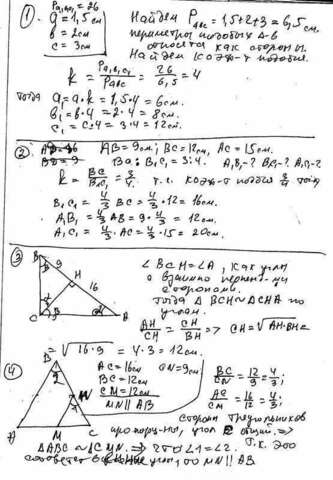 ① P a₁b₁c₁ = 26
a = 1,5 см
b = 2 см
c = 3 см
Найдем P авс = 1,5+2+3 = 6,5 см.
периметры подобных Δ-в
относятся как стороны.
Найдем коэф-т подобия.
k = P a₁b₁c₁ / P авс = 26 / 6,5 = 4
тогда
a₁ = a·k = 1,5·4 = 6 см.
b₁ = b·4 = 2·4 = 8 см.
c₁ = c·4 = 3·4 = 12 см.
② AB = 9 см; BC = 12 см, AC = 15 см.
B₁C₁ = 3:4. A₁B₁-? B₁C₁-? A₁C₁-?
k = BC / B₁C₁ = 3/4. т.к. коэф-т подобия 3/4
B₁C₁ = 4/3 BC = 4/3·12 = 16 см.
A₁B₁ = 4/3 AB = 9·4/3 = 12 см.
A₁C₁ = 4/3·AC = 4/3·15 = 20 см.
③ B 9 H 16 C A
∠BCH = ∠A, как углы
с взаимно перпен-ми
сторонами.
Тогда Δ BCH ~ ΔCHA по
углам.
AH/CH = CH/BH => CH = √AH·BH =
= √16·9 = 4·3 = 12 см.
④ B 2 N 1 A M C
AC = 16 см
BC = 12 см
CM = 12 см
CN = 9 см
MN || AB
BC/CN = 12/9 = 4/3;
AC/CM = 16/12 = 4/3;
стороны треугольников
пропорц-ны, угол C общий. =>
ΔABC ~ ΔCMN. => ∠1 = ∠2. Т.к. это
соответственные углы, то MN || AB